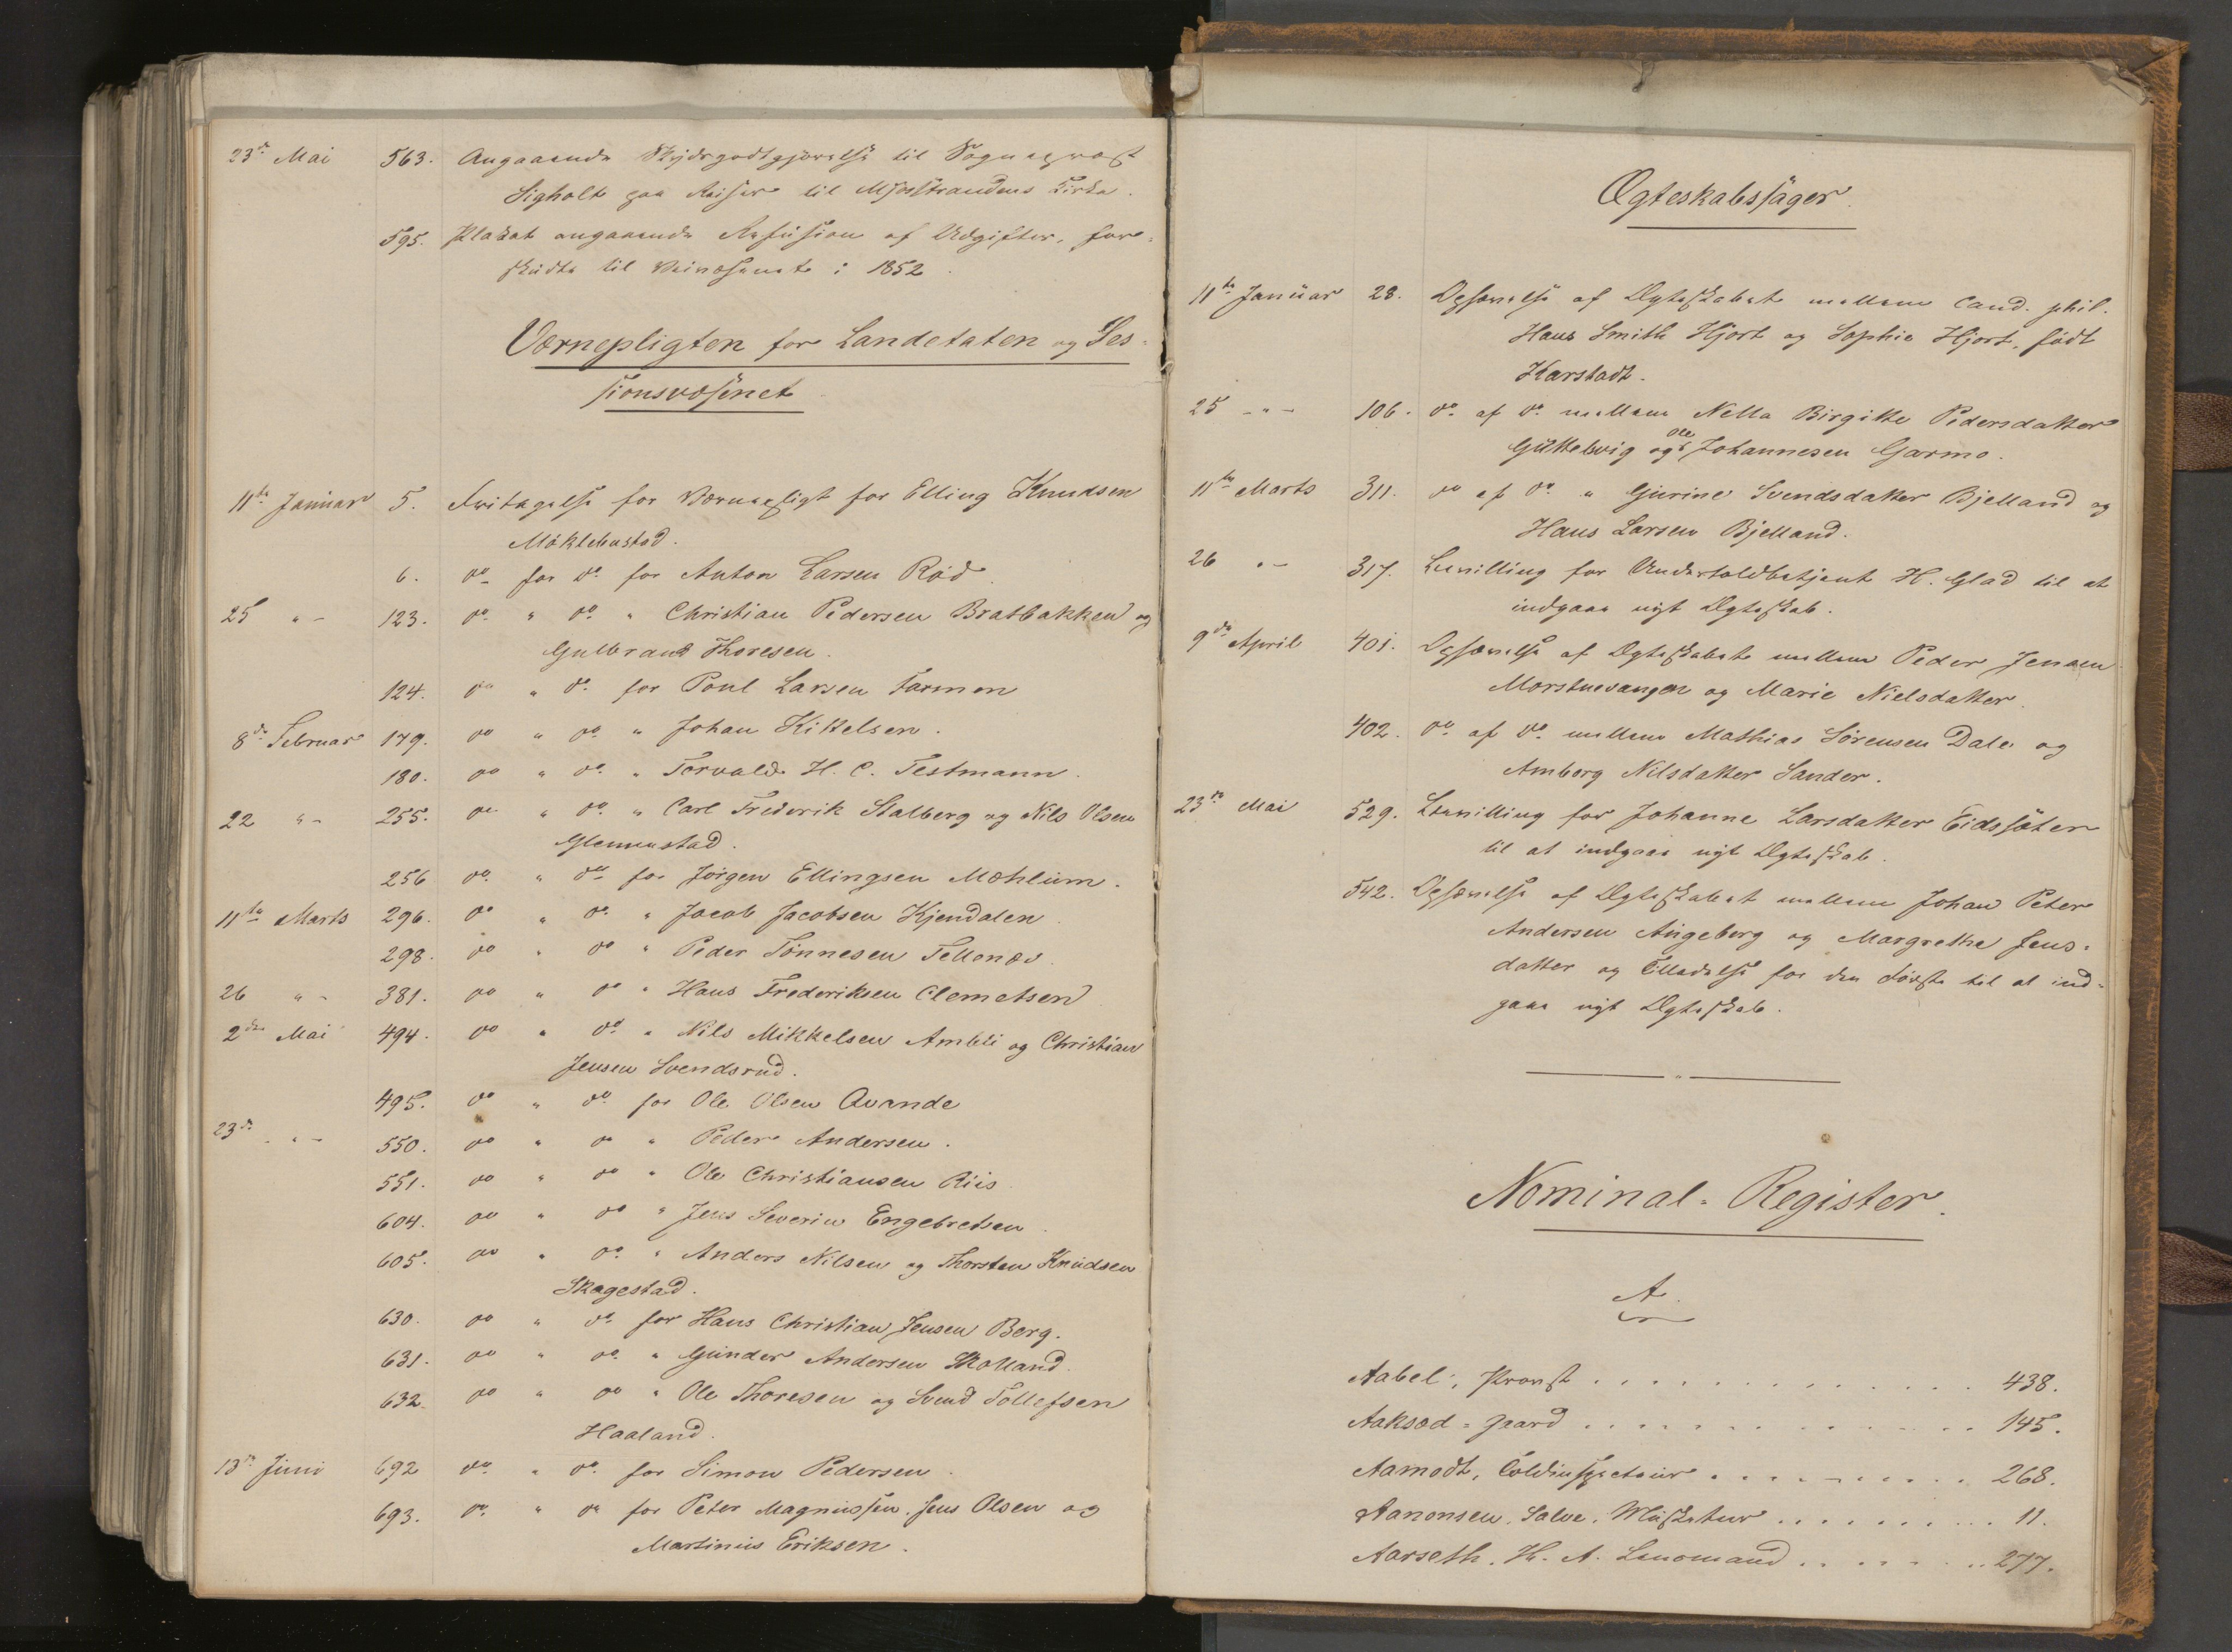 23de Mai 563. Angaaende Skydsgodtgjørelse til Sogneprest
Sigholt paa Reiser til Mjøsstrandens Kirke.
595. Plakat angaaende Refusion af Udgifter, fore=
skudte til Veivæsenet i 1852.
Værnepligten for Landetaten og Ses=
sionsvæsenet
11te Januar 5. Fritagelse for Værnepligt for Elling Knudsen
Möklebustad.
6. do for do for Anton Larsen Röd.
25 " - 123. do " do " Christian Pedersen Bratbakken og
Gulbrand Thoresen.
124. do " do for Poul Larsen Farmen
8de Februar 179. do " do " Johan Kittelsen.
180. do " do " Torvald H. C. Testmann.
22 " - 255. do " do " Carl Frederik Stalberg og Nils Olsen
Glennestad.
256 do " do for Jörgen Ellingsen Mæhlum.
11te Marts 296. do " do " Jacob Jacobsen Kjendalen
298. do " do " Peder Tönnesen Tellenæs.
26 " - 381. do " do " Hans Frederiksen Clemetsen
2den Mai 494. do " do " Nils Mikkelsen Ambli og Christian
Jensen Svendsrud.
495. do " do for Ole Olsen Qvande
23de " - 550. do " do " Peder Andersen.
551. do " do " Ole Christiansen Riis
604. do " do " Jens Severin Engebretsen.
605. do " do " Anders Nilsen og Thorsten Knudsen
Skagestad.
630. do " do for Hans Christian Jensen Berg.
631. do " do " Gunder Andersen Skolland.
632. do " do " Ole Thoresen og Svend Tollefsen
Haaland.
13de Juni 692 do " do for Simon Pedersen.
693. do " do for Peter Magnussen, Jens Olsen og
Martinus Eriksen.
Ægteskabssager.
11te Januar 28. Ophævelse af Ægteskabet mellem Cand. phil.
Hans Smith Hjort og Sophie Hjort, födt
Karstadt.
25 - " - 106. do af do mellem Nella Birgitte Pedersdatter
Guttebvig og Ole Johannesen Garmo.
11te Marts 311. do af do " Gurine Svendsdatter Bjelland og
Hans Larsen Bjelland.
26 " - 317. Bevilling for Undertoldbetjent H. Glad til at
indgaae nyt Ægteskab.
9de April 401. Ophævelse af Ægteskabet mellem Peder Jensen
Morstuesangen og Marie Nielsdatter.
402. do af do mellem Mathias Sörensen Dale og
Amborg Nilsdatter Sander.
23de Mai 529. Bevilling for Johanne Larsdatter Eidssæter
til at indgaae nyt Ægteskab.
542. Ophævelse af Ægteskabet mellem Johan Peter
Andersen Angeberg og Margrethe Jens=
datter og Tilladelse for den Første til at ind=
gaae nyt Ægteskab.
Nominal=Register.
A.
Aabel, Provst 438.
Aaksød=gaard 145.
Aamodt, Toldinspecteur 268.
Aanonsen, Salve, Musketeer 11.
Aarseth, H. A. Lensmand 277.